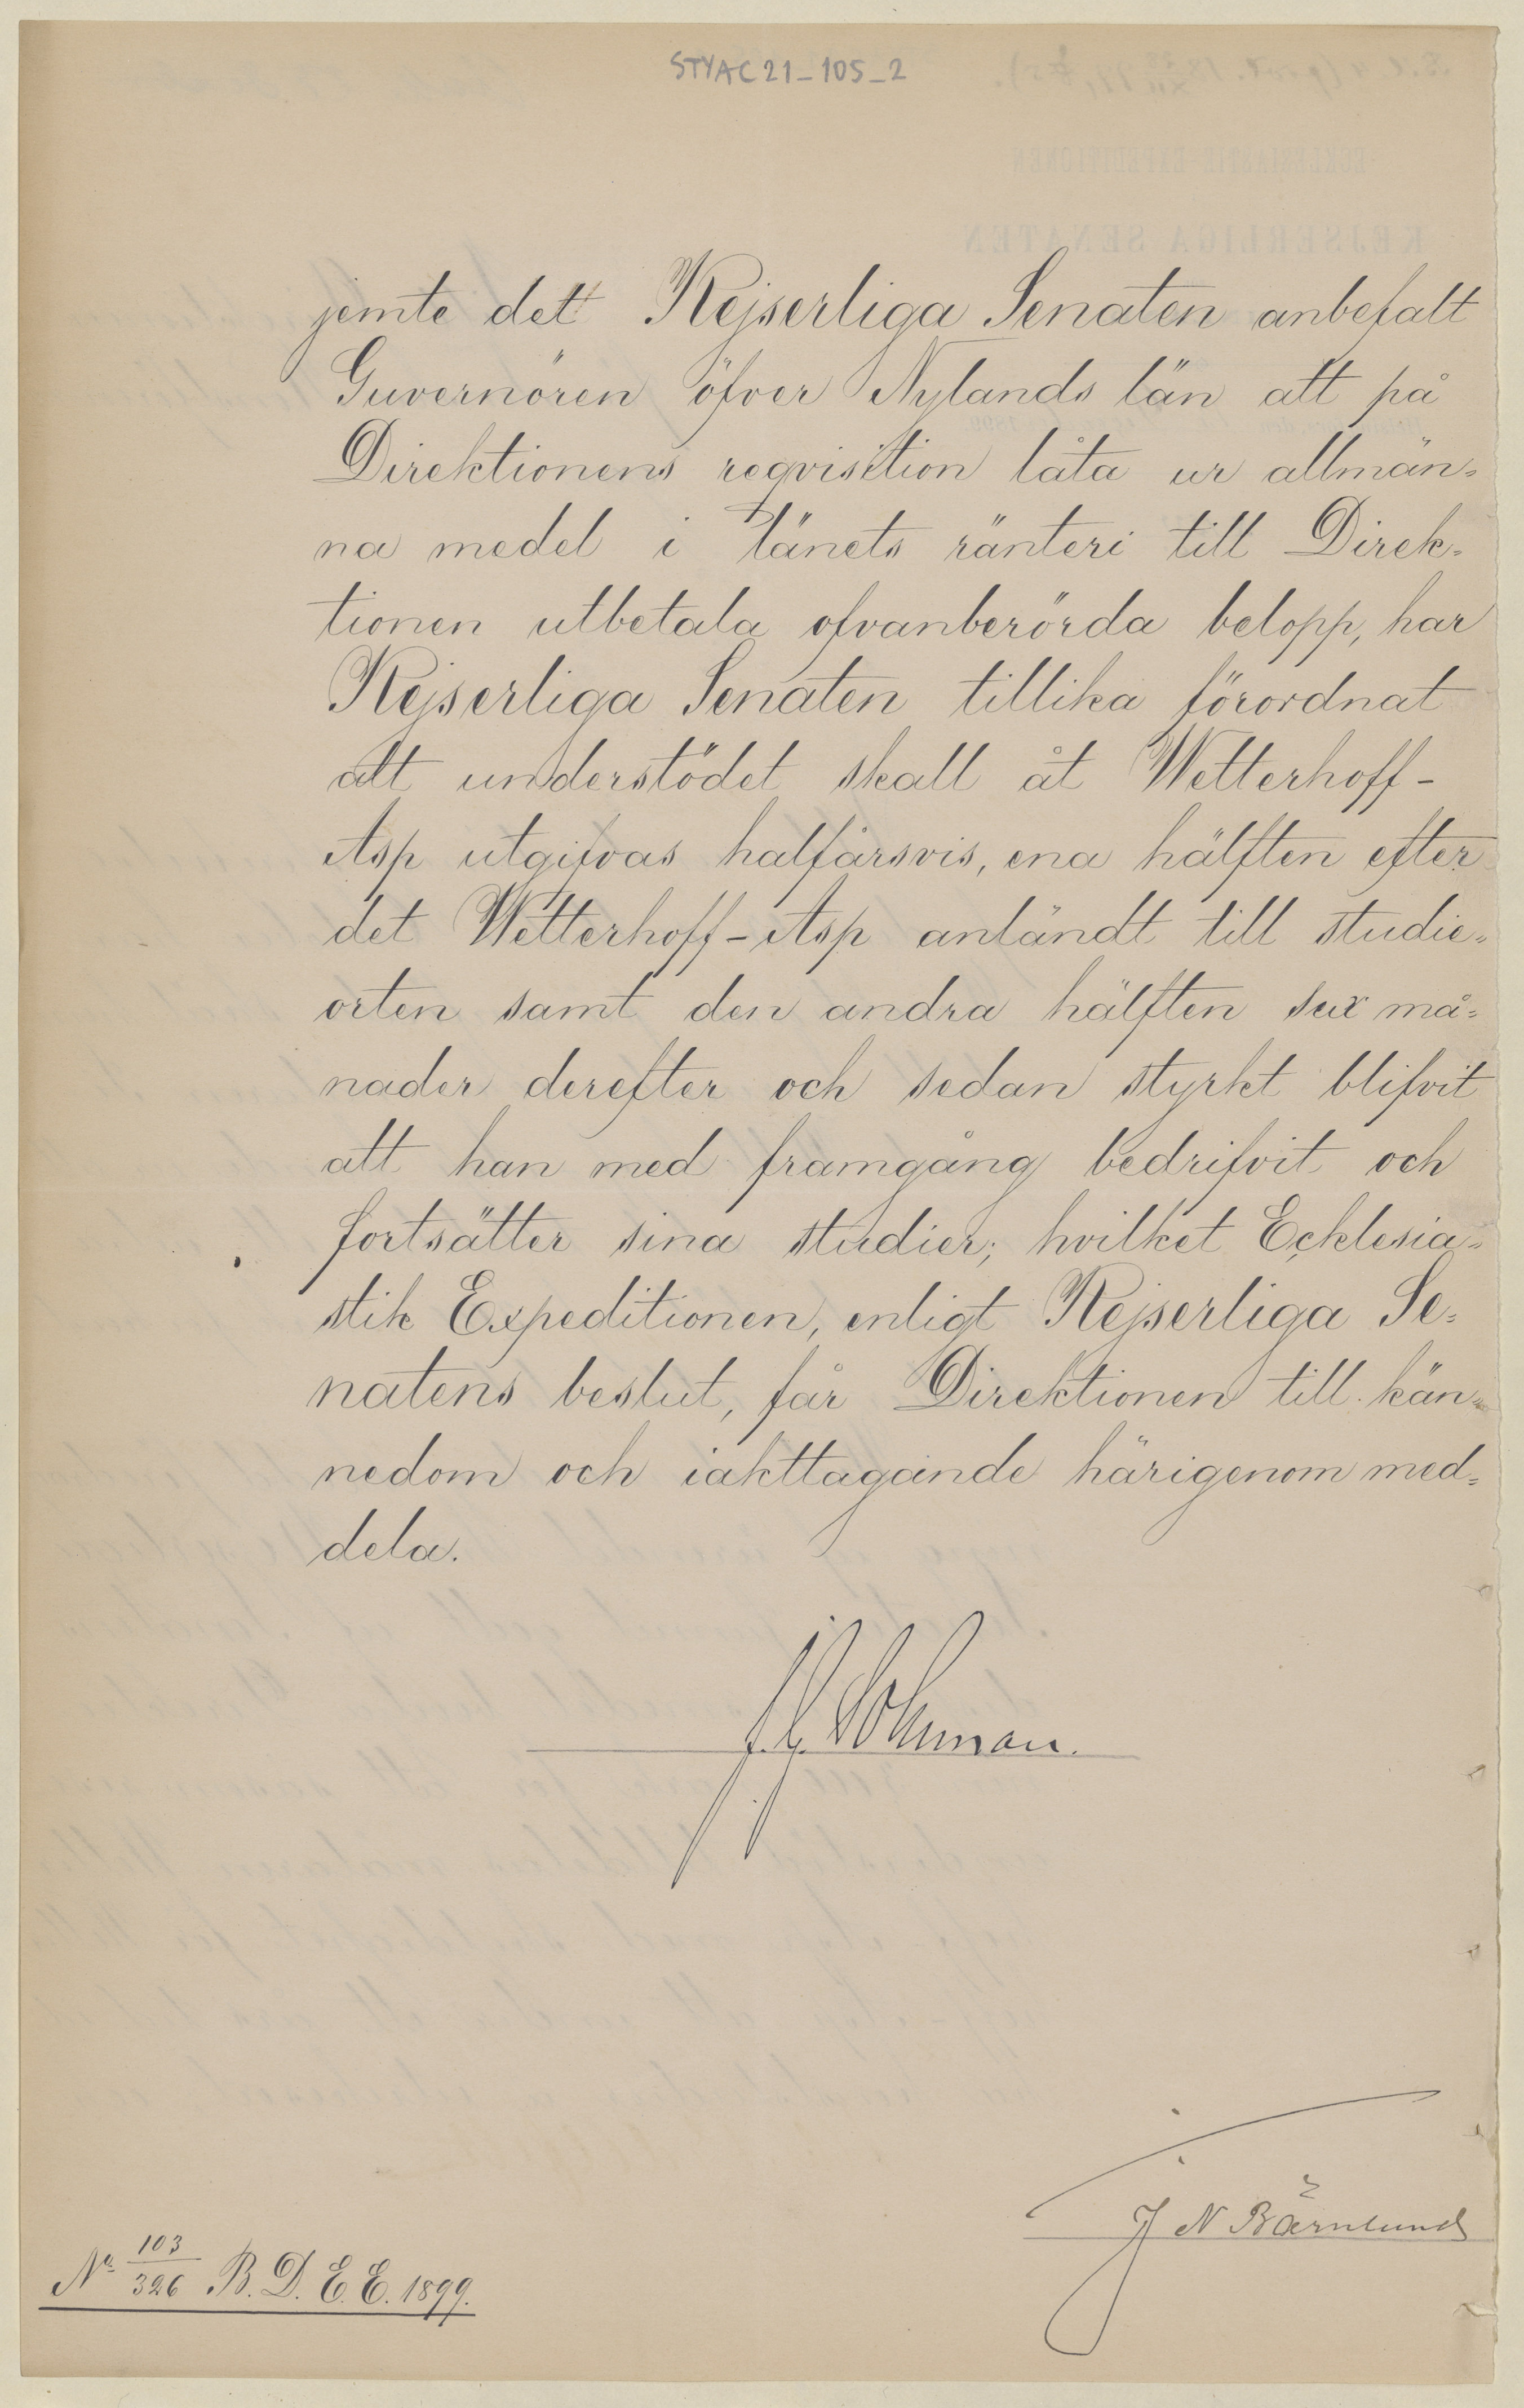 STYAC21_105_2
jemte det Kejserliga Senaten anbefalt
Guvernören öfver Nylands län att på
Direktionens reqvisition låta ur allmän=
na medel i länets ränteri till Direk=
tionen utbetala ofvanberörda belopp, har
Kejserliga Senaten tillika förordnat
att understödet skall åt Wetterhoff-
Asp utgifvas halfårsvis, ena hälften efter
det Wetterhoff-Asp anländt till studie=
orten samt den andra hälften sex må=
nader derefter och sedan styrkt blifvit
att han med framgång bedrifvit och
fortsätter sina studier; hvilket Ecklesia=
stik Expeditionen, enligt Kejserliga Se=
natens beslut, får Direktionen till kän=
nedom och iakttagande härigenom med=
dela.
J N Bärnlund
No 103/326 B. D. E. E. 1899.